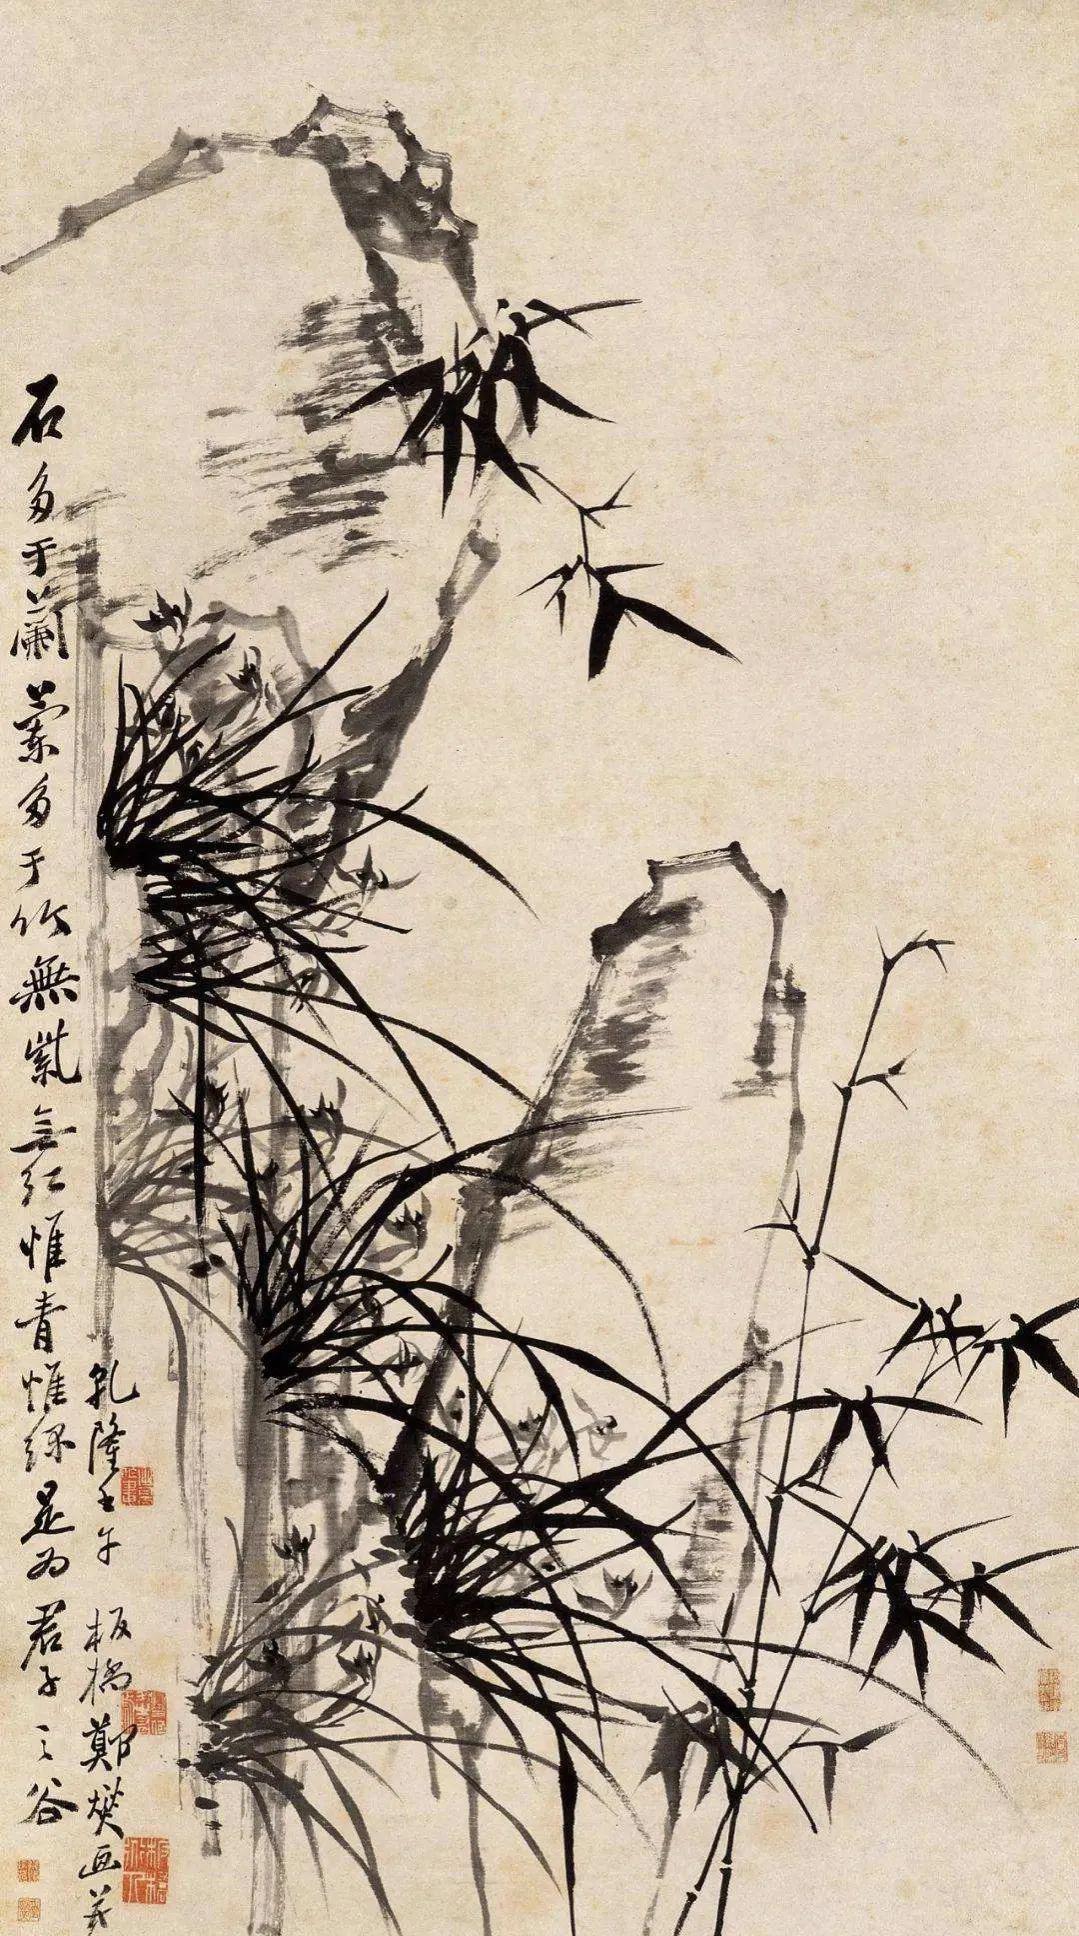 石多于蘭蘭多于竹無紫無红惟青惟绿是为君子之谷
乾隆壬午板橋鄭燮画并